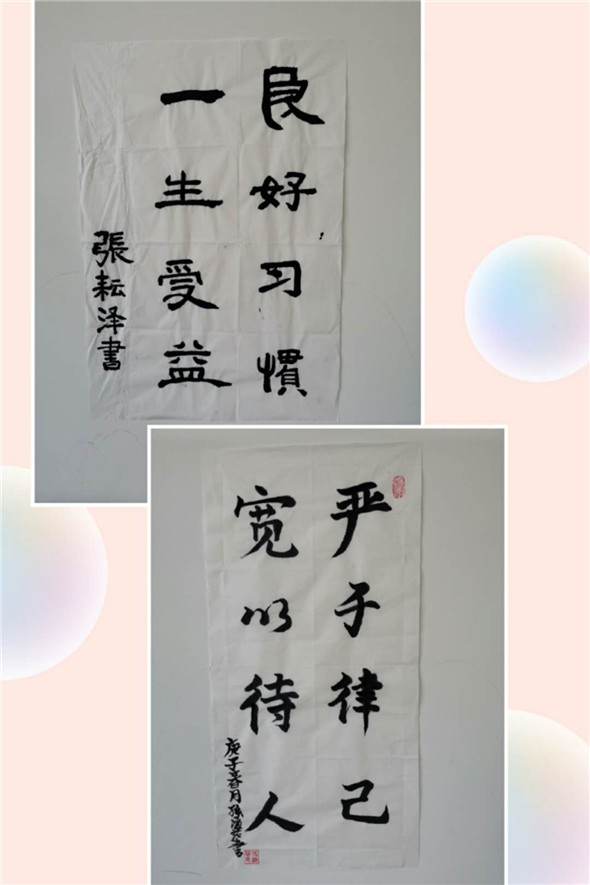 良好习慣
一生受益
張耘泽書
严于律己
宽以待人
庚子春月孫書